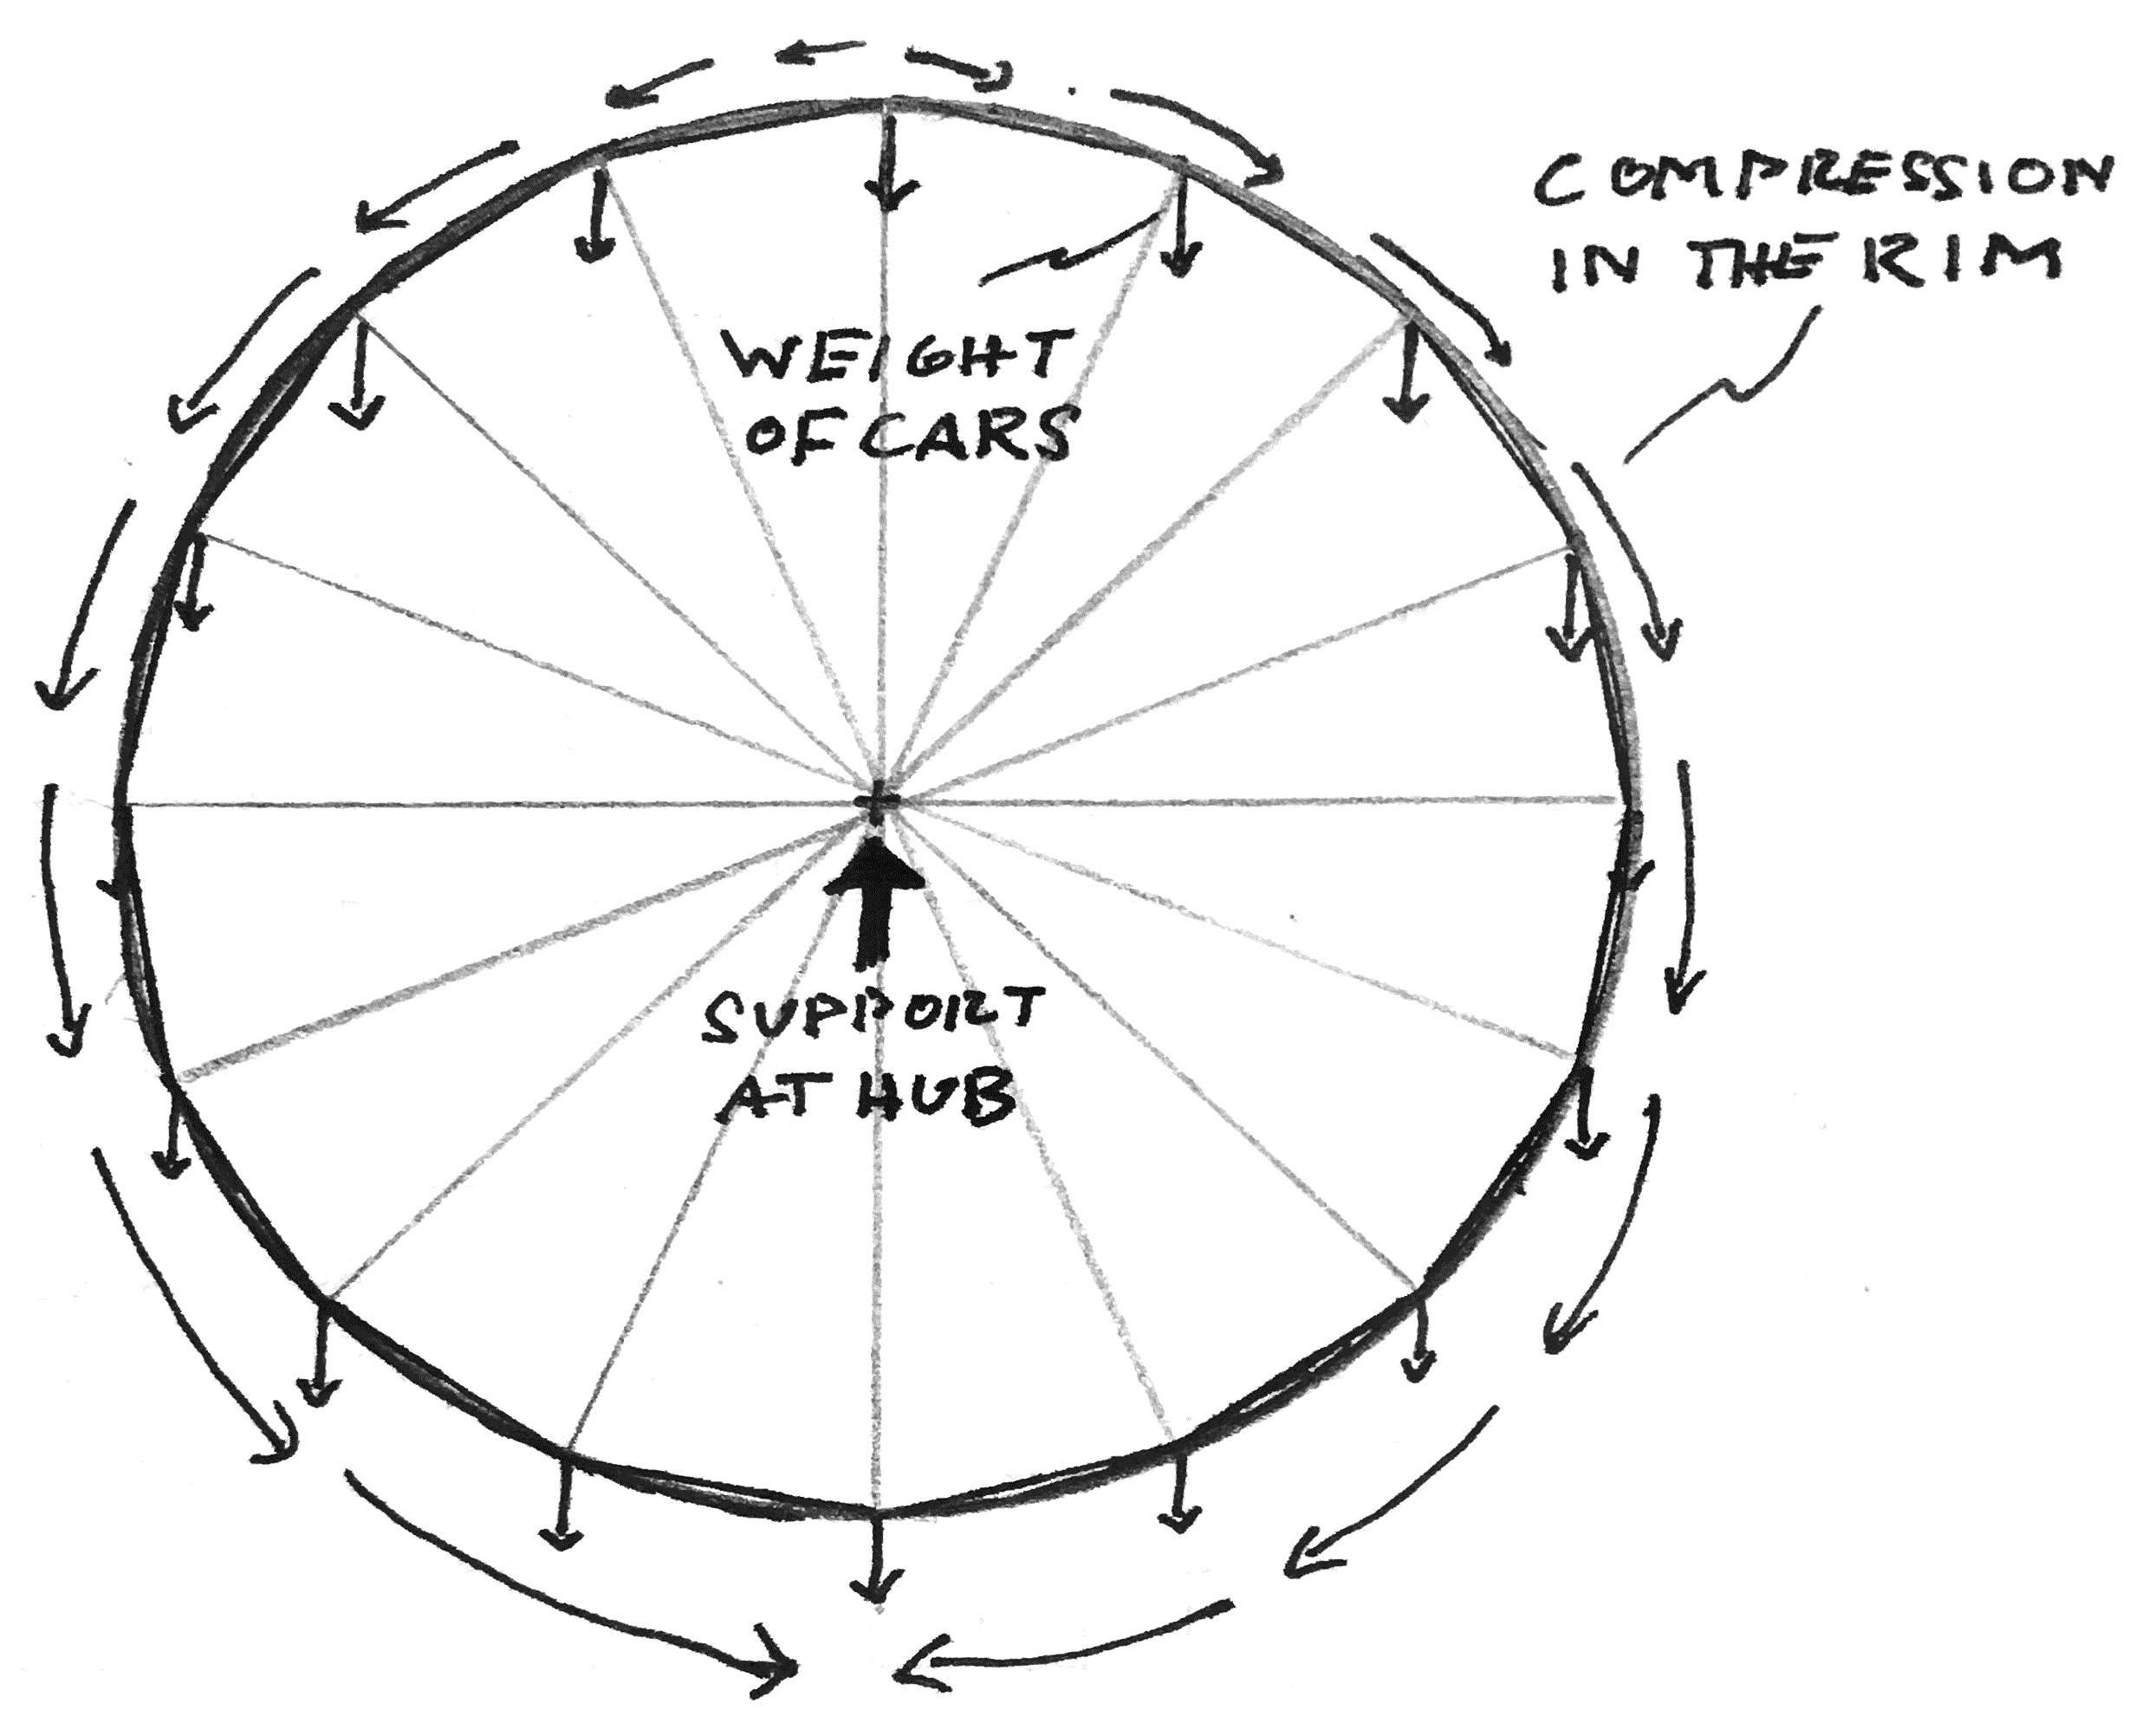 COMPRESSION
IN THE RIM
WEIGHT
OF CARS
SUPPORT
AT HUB